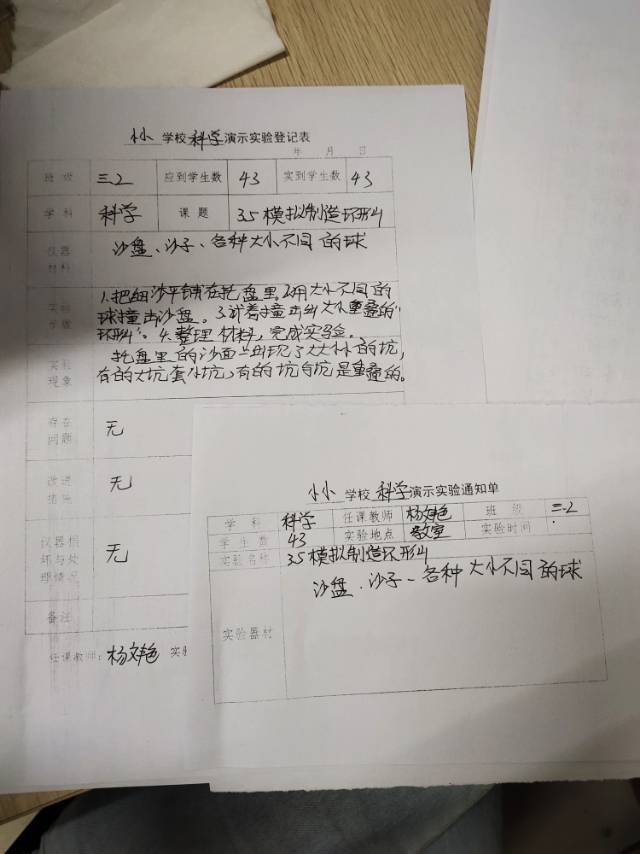 小 学校 科学 演示实验登记表
年 月 日
班 级 三.2 应到学生数 43 实到学生数 43
学 科 科学 课 题 3.5模拟制造环形山
仪器材料 沙盘、沙子、各种大小不同的球
1.把细沙平铺在托盘里。2.用大小不同的
球撞击沙盘。3.试着撞击出大小重叠的"
环形山"。4.整理材料,完成实验。
实验现象
托盘里的沙面上出现了大大小小的坑,
有的大坑套小坑,有的坑与坑是重叠的。
存在问题 无
改进措施 无
仪器损坏与处理情况 无
备注
任课教师:杨文艳 实验
小 学校 科学 演示实验通知单
学 科 科学 任课教师 杨文艳 班 级 三.2
学 生 数 43 实验地点 教室 实验时间
实验名称 3.5模拟制造环形山
实验器材 沙盘、沙子、各种大小不同的球